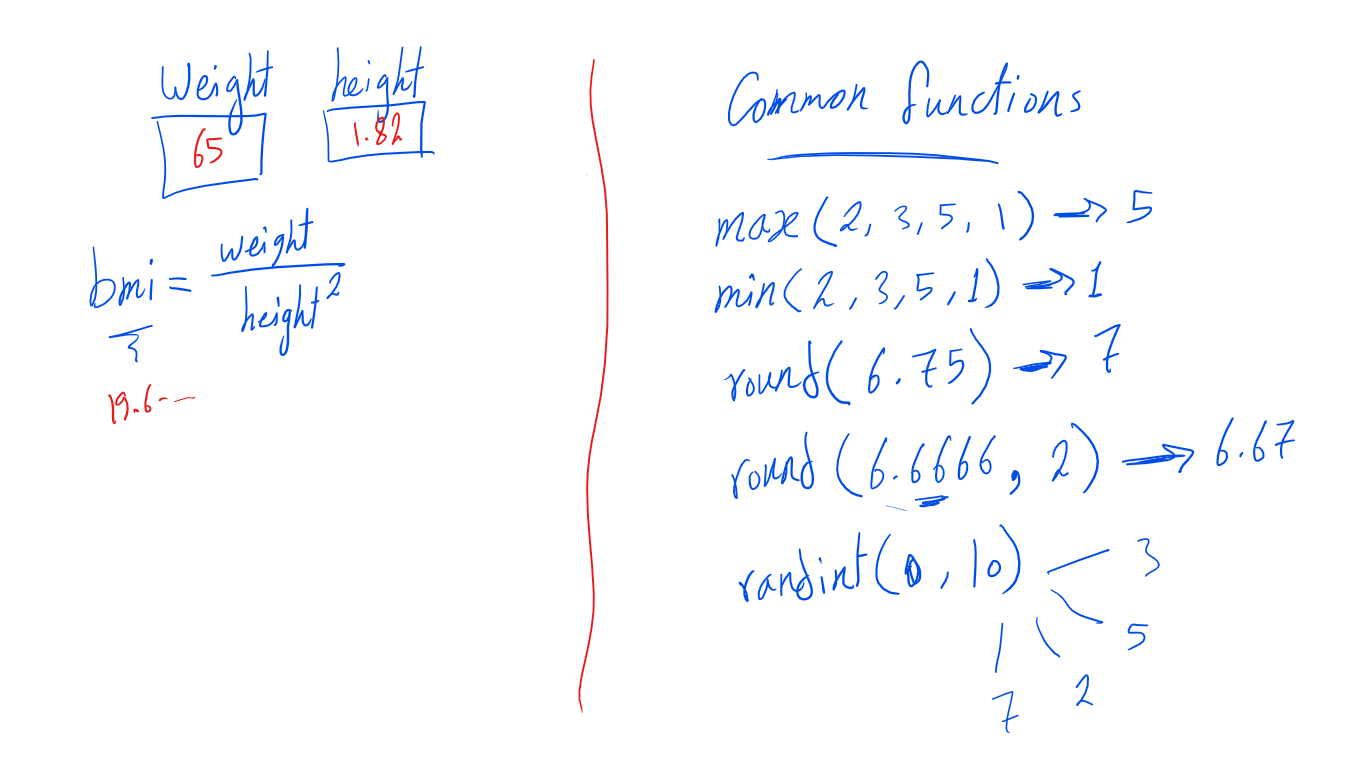 Weight height
65 1.82
bmi = weight
height²
19.6
Common functions
max(2, 3, 5, 1) → 5
min(2, 3, 5, 1) → 1
round(6.75) → 7
round(6.6666, 2) → 6.67
randint(0, 10) 3
5
2
7